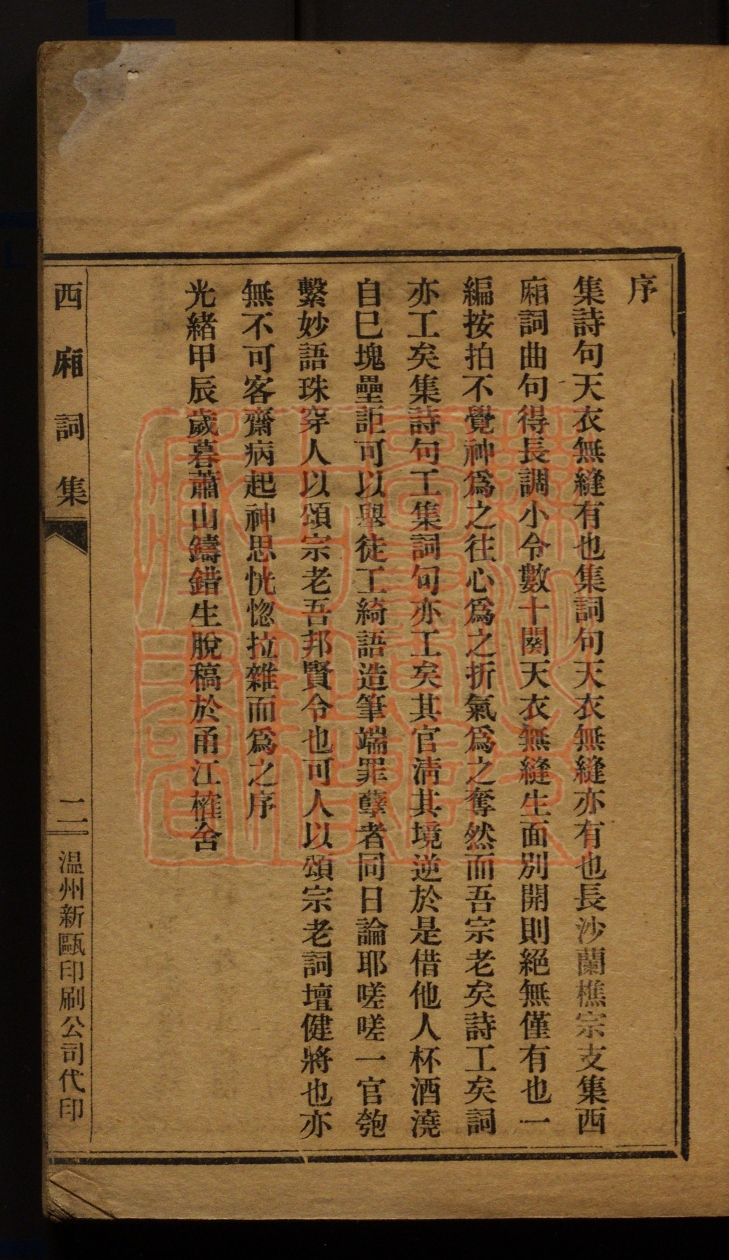 序
集詩句天衣無縫有也集詞句天衣無縫亦有也長沙蘭樵宗支集西
廂詞曲句得長調小令數十闋天衣無縫生面別開則絕無僅有也一
編按拍不覺神爲之往心爲之折氣爲之奪然而吾宗老矣詩工矣詞
亦工矣集詩句工集詞句亦工矣其官淸其境逆於是借他人杯酒澆
自巳塊壘詎可以舉徒工綺語造筆端罪孽者同日論耶嗟嗟一官匏
繫妙語珠穿人以頌宗老吾邦賢令也可人以頌宗老詞壇健將也亦
無不可客齋病起神思恍惚拉雜而爲之序
光緒甲辰歲暮蕭山鑄錯生脫稿於甬江榷舍
西廂詞集
二
温州新甌印刷公司代印